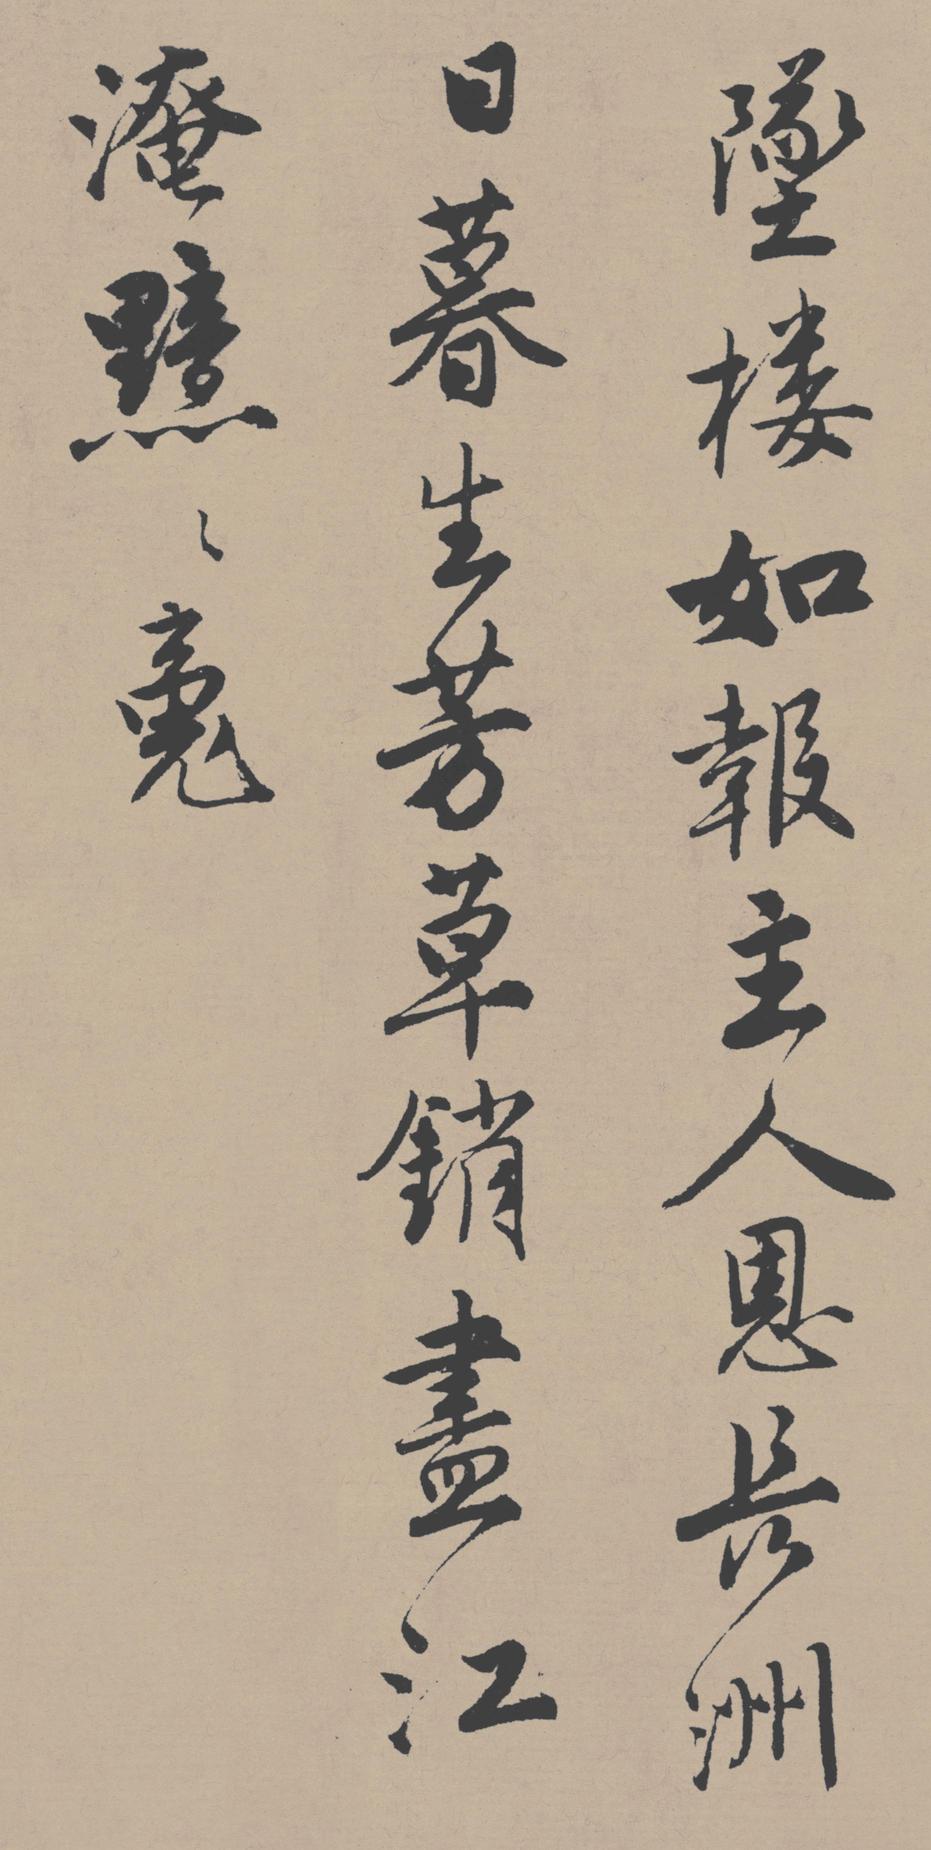 墜楼如報主人恩長洲
日暮生芳草銷盡江
淹黯々魂